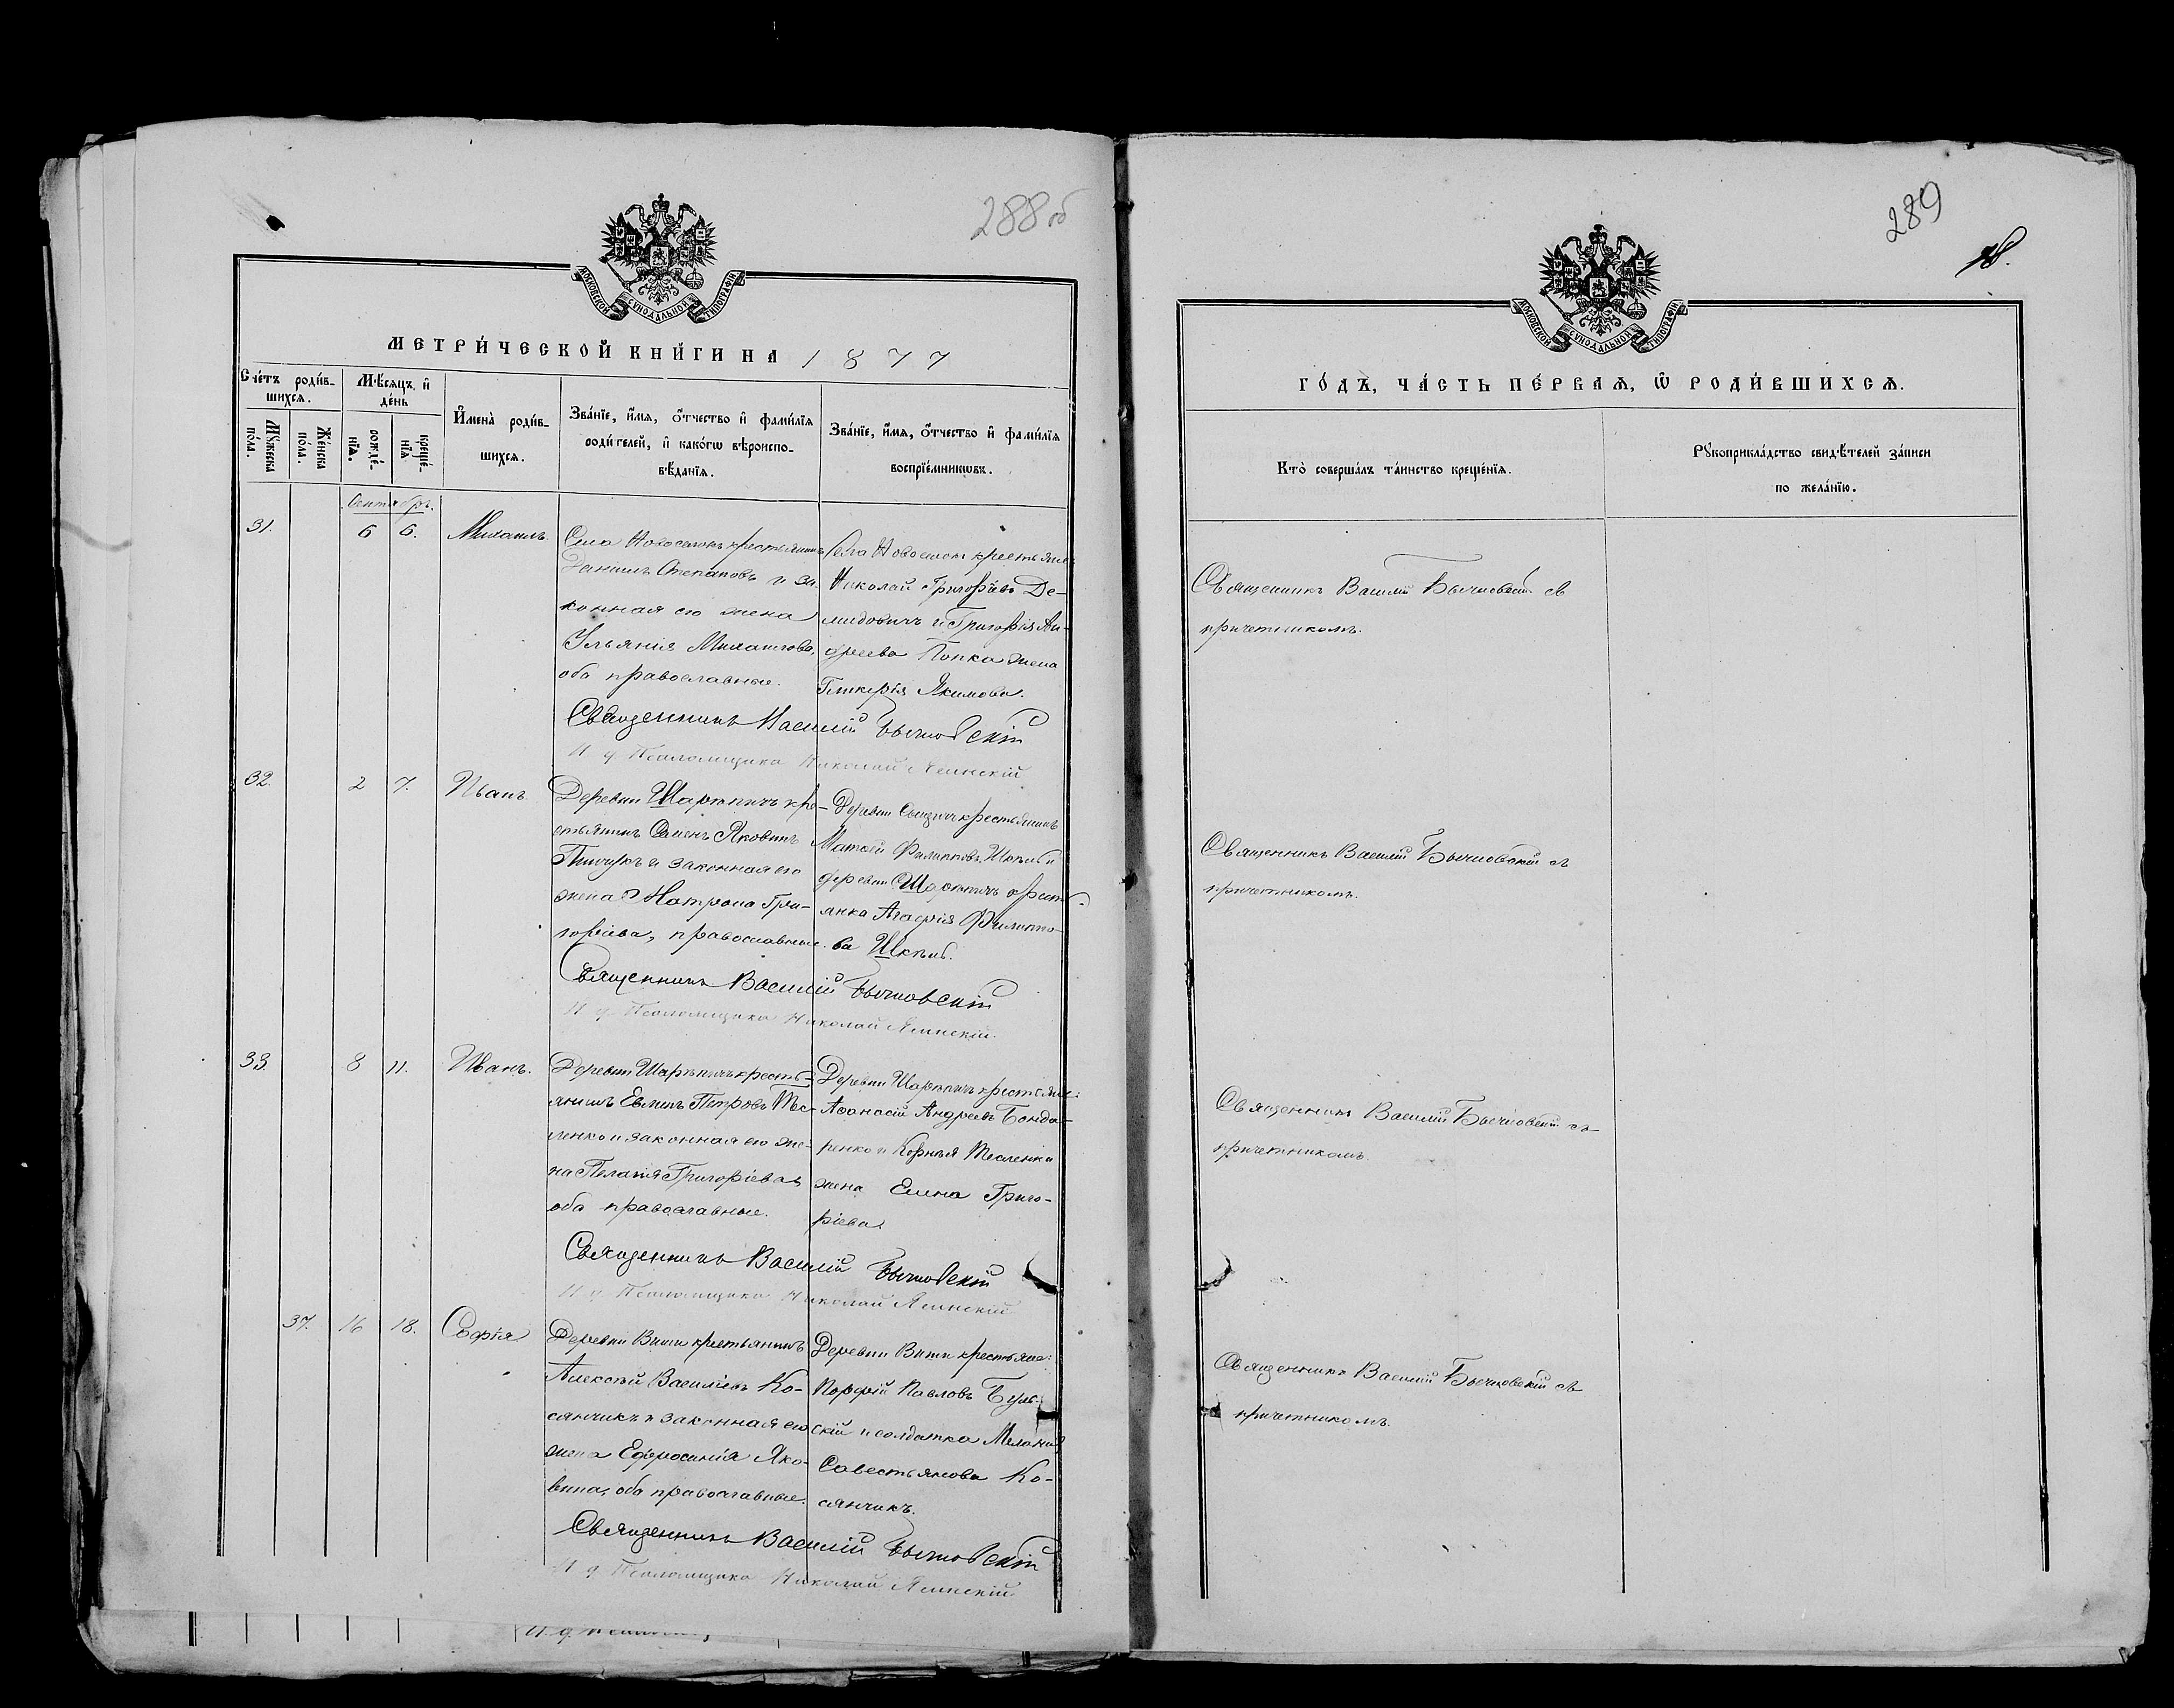 288 об
МОСКОВСКОЙ СѴНОДАЛЬНОЙ ТИПОГРАФІИ
МЕТРИ́ЧЕСКОЙ КНИ́ГИ НА 1877
Сче́тъ роди́в-
шихсѧ.
Мѣ́сяцъ и҆
де́нь
Мꙋ́жеска
по́ла.
Же́нска
по́ла.
рожде́-
нїѧ.
креще́-
нїѧ
И҆мена̀ роди́в-
шихсѧ.
Зва́нїе, и҆́мѧ, ѻ҆́тчество и҆ фами́лїѧ
роди́телей, и҆ како́гѡ вѣроиспо-
вѣ́данїѧ.
Зва́нїе, и҆́мѧ, ѻ҆́тчество и҆ фами́лїѧ
воспрїе́мникѡвъ.
Сентябрь.
31. 6 6. Михаилъ.
Села Новоселокъ крестьянинъ
Даніилъ Степановъ и за-
конная его жена
Ульянія Михаилова,
оба православные.
Села Новоселокъ крестьяне
Николай Григорьевъ Де-
мидовичъ и Григорія Ан-
дреева Попка жена
Гликерія Якимова.
Священникъ Василій Бычковскій
И д Псаломщика Николай Ясинскій
32. 2 7. Иванъ
Деревни Шарѣпичъ кре-
стьянинъ Семенъ Яковинъ
и законная его
жена Матрона Гри-
горіева, православные.
Деревни крестьянинъ
Матѳей Филипповъ и
деревни Шарѣпичъ крестъ-
янка Агафія Филиппо-
ва
Священникъ Василій Бычковскій
И д Псаломщика Николай Ясинскій.
33. 8 11. Иванъ.
Деревни Шарѣпичъ кресть-
янинъ Евменъ Петровъ Тес-
ленко и законная его же-
на Пелагія Григоріева
оба православные.
Деревни Шарѣпичъ крестьяне:
Аѳанасій Андреевъ Бонда-
ренко и Корнѣя Тесленки
жена Елена Григо-
ріева
Священникъ Василій Бычковскій
И д Псаломщика Николай Ясинскій
37. 16 18. Софія
Деревни крестьянинъ
Алексѣй Васильевъ Ко-
сянчикъ и законная его
жена Ефросинія Яко-
вина, оба православные.
Деревни крестьяне:
Порфирій Павловъ
скій и солдатка Меланія
Савестьянова Ко-
сянчикъ.
Священникъ Василій Бычковскій
И д Псаломщика Николай Ясинскій.
289
МОСКОВСКОЙ СѴНОДАЛЬНОЙ ТИПОГРАФІИ
ГО́ДЪ, ЧА́СТЬ ПЕ́РВАѦ, Ѡ҆ РОДИ́ВШИХСѦ.
Кто̀ соверша́лъ та́инство креще́нїѧ.
Рꙋкоприкла́дство свидѣ́телей за́писи
по жела́нїю.
Священникъ Василій Бычковскій съ
причетникомъ.
Священникъ Василій Бычковскій съ
причетникомъ.
Священникъ Василій Бычковскій съ
причетникомъ.
Священникъ Василій Бычковскій съ
причетникомъ.